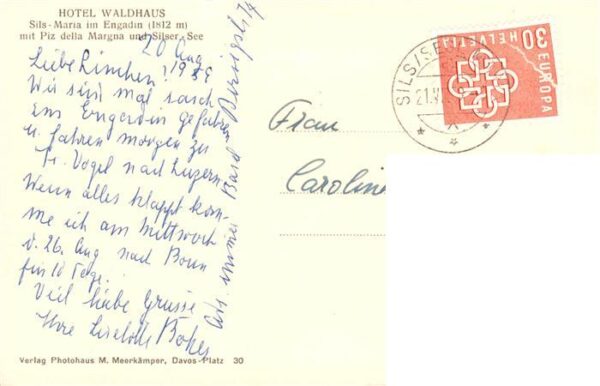 HOTEL WALDHAUS
Sils-Maria im Engadin (1812 m)
mit Piz della Margna und Silser See
20 Aug
1959
Liebe Linchen!
Wir sind mal rasch
ins Engadin gefahren
u. fahren morgen zu
Fr. Vogel nach Luzern.
Wenn alles klappt kom-
me ich am Mittwoch
d. 26. Aug nach Bonn
für 10 Tage.
Viel liebe Grüsse
Ihre Liselotte
immer Basel
Verlag Photohaus M. Meerkämper, Davos-Platz 30
Frau
Caroline
SILS/SE
21.V
HELVETIA
30
EUROPA